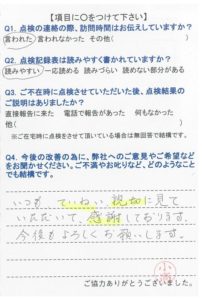 【項目に〇をつけて下さい】
Q1. 点検の連絡の際、訪問時間はお伝えしていますか?
言われた 言われなかった その他(    )
Q2. 点検記録表は読みやすく書かれていますか?
読みやすい 一応読める 読みづらい 読めない部分がある
Q3. ご不在時に点検させていただいた後、点検結果の
ご説明はありましたか?
直接報告に来た 電話で報告があった 何もなかった
他(    )
※ご在宅時に点検をさせて頂いている場合は無回答で結構です。
Q4. 今後の改善の為に、弊社へのご意見やご希望など
をお聞かせください。ご不満やお叱りなど、どのようなこと
でも結構です。
いつも ていねい 親切に見て
いただいて、感謝しております。
今後もよろしくお願いします。
ご協力ありがとうございました。